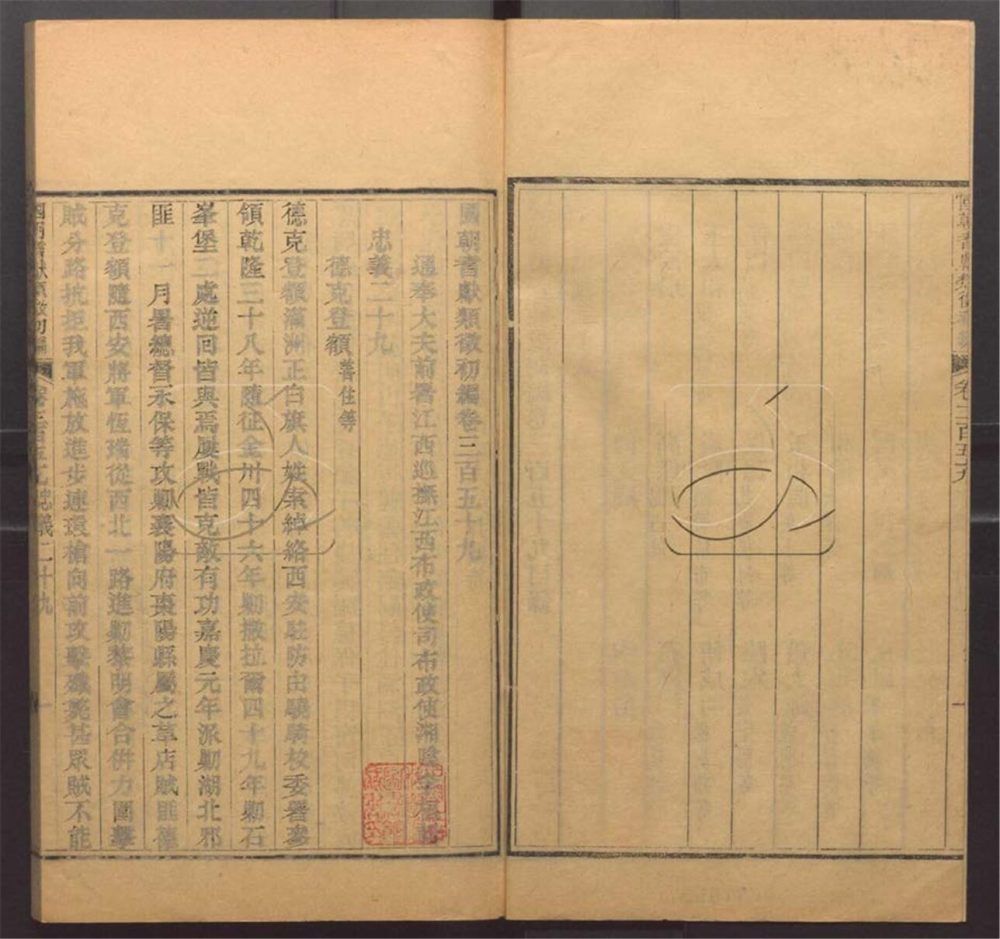 卷三百五十九
一
國朝耆獻類徵初編卷三百五十九
通奉大夫前署江西巡撫江西布政使司布政使湘陰李桓輯
忠義二十九
德克登額 善住等
德克登額滿洲正白旗人姓索綽絡西安駐防由驍騎校委署參
領乾隆三十八年隨征金川四十六年勦撒拉爾四十九年勦石
峯堡二處逆回皆與焉屢戰皆克敵有功嘉慶元年派勦湖北邪
匪十一月署總督永保等攻勦襄陽府棗陽縣屬之草店賊匪德
克登額隨西安將軍恆瑞從西北一路進勦黎明會合併力圍擊
賊分路抗拒我軍施放進步連環槍向前攻擊殲斃甚眾賊不能
國朝耆獻類徵初編 卷三百五十九 忠義二十九
一